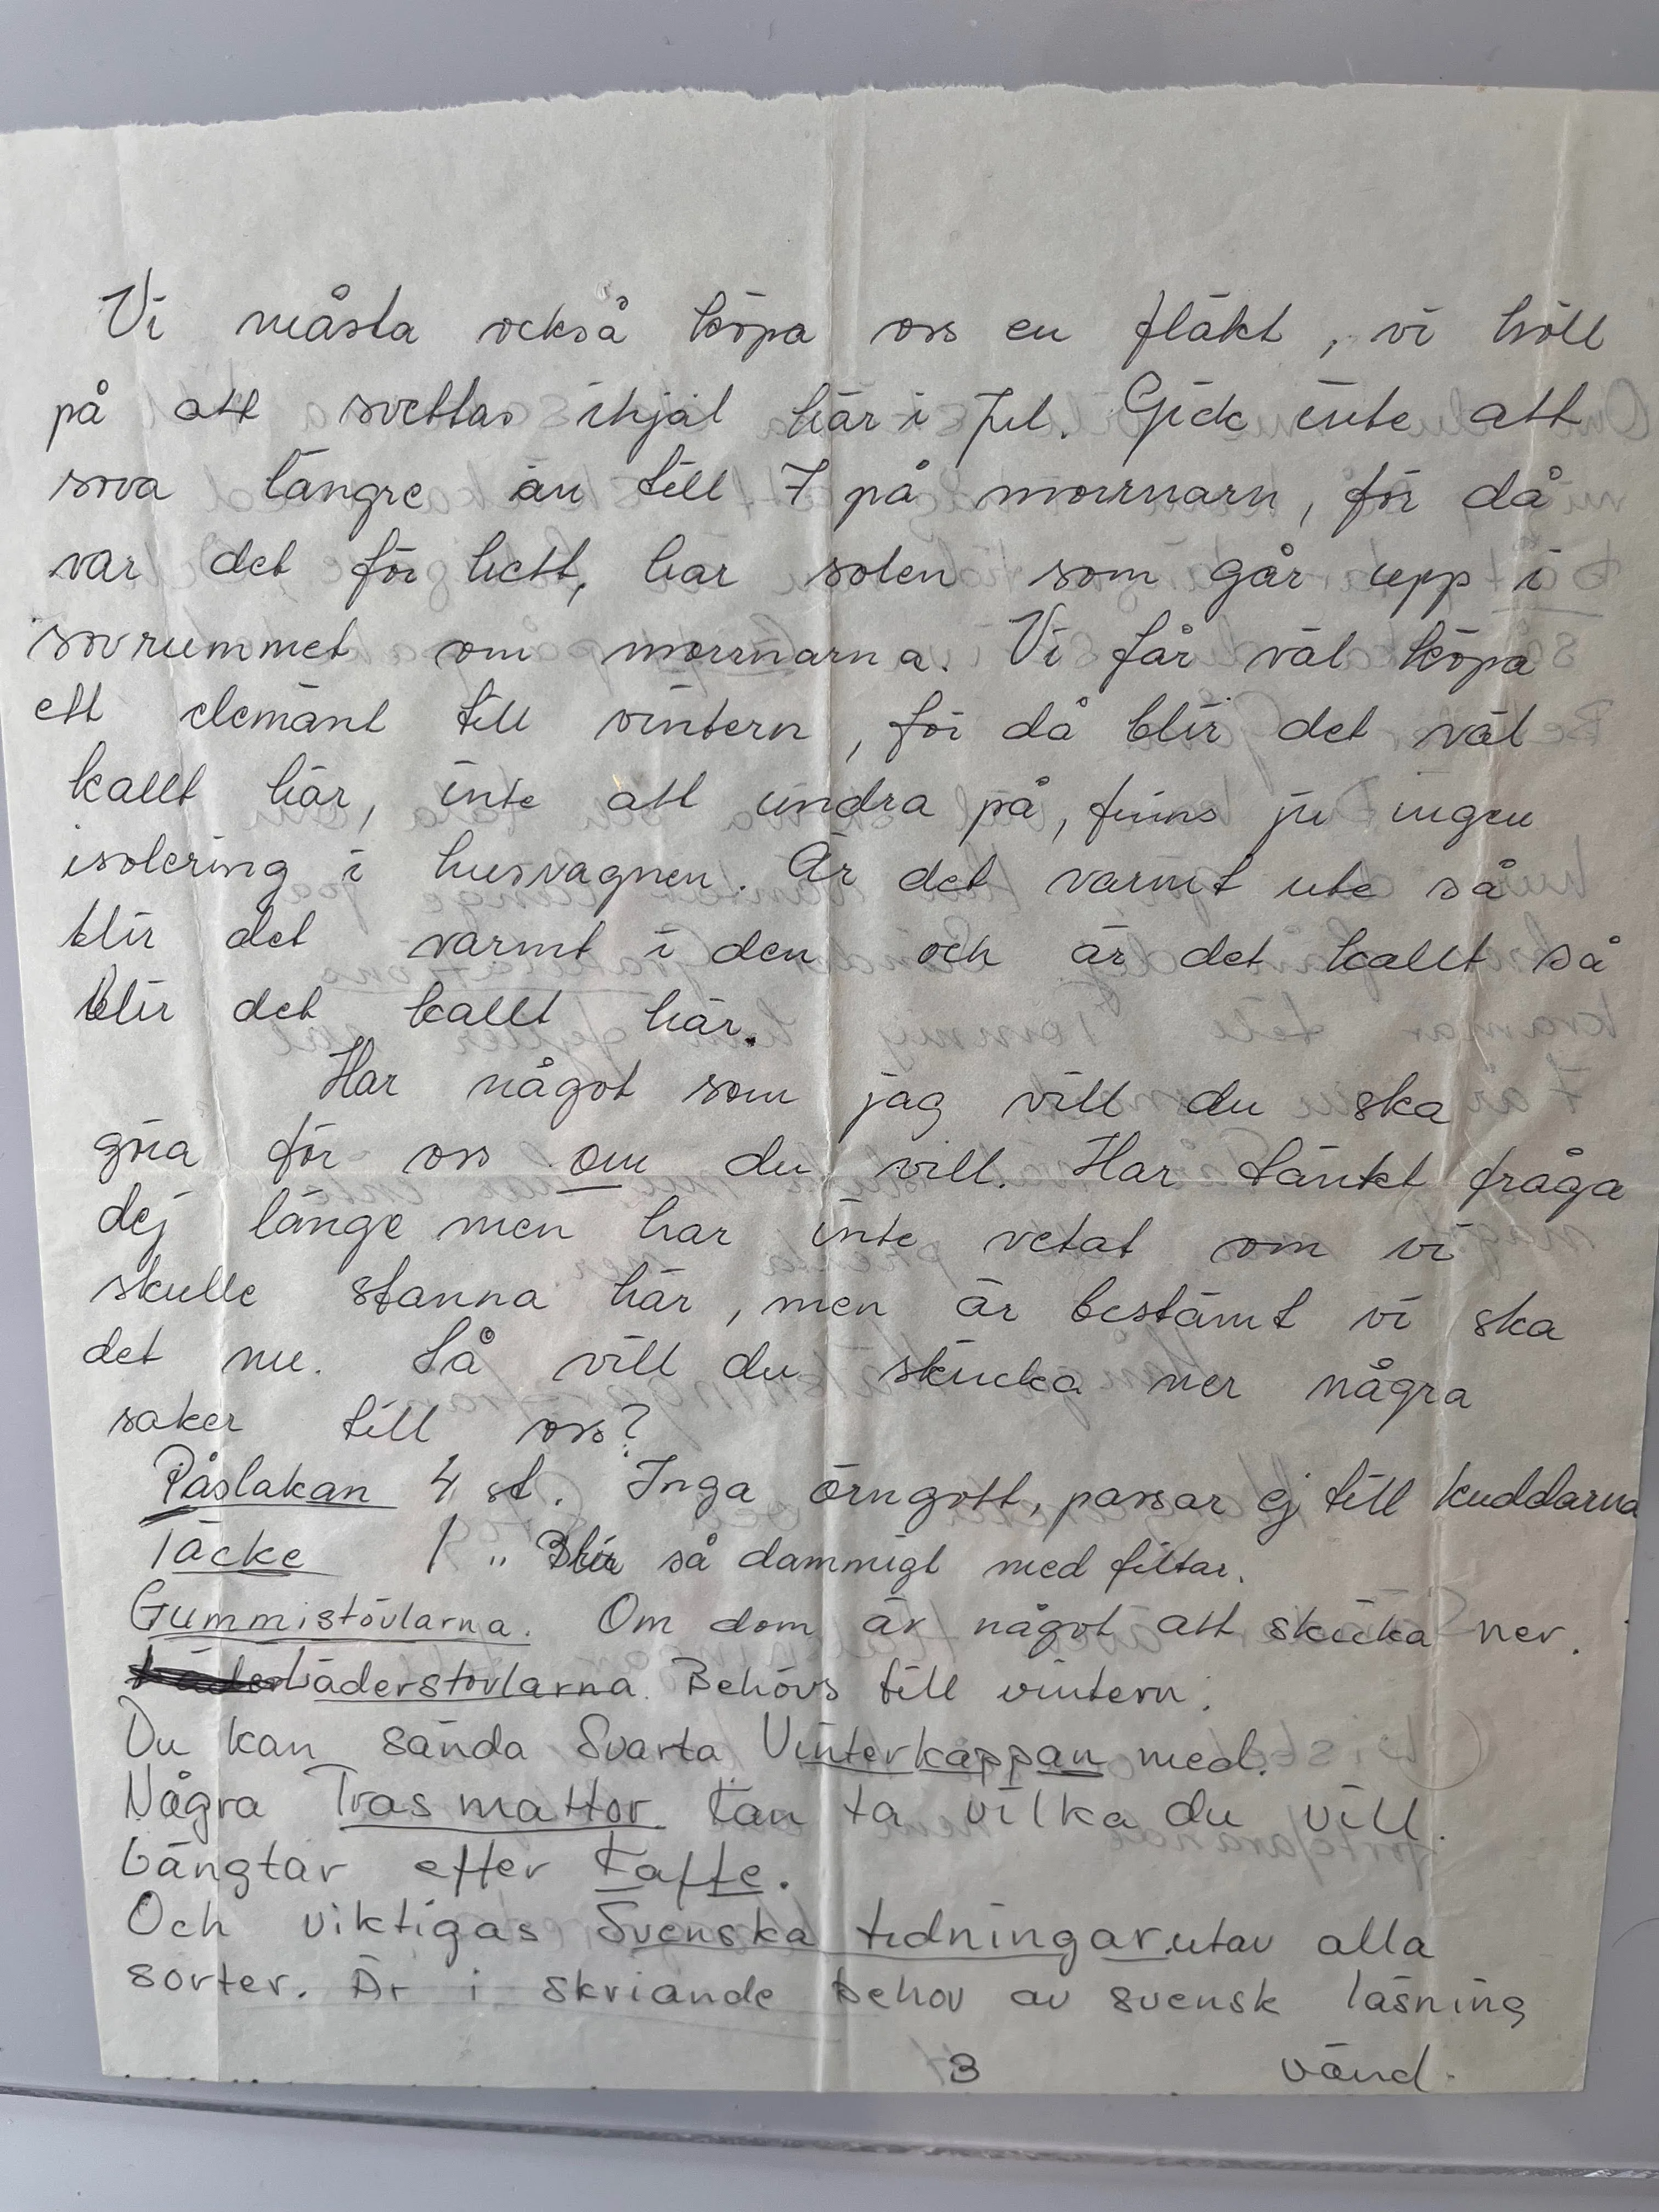 Vi måsta också köpa oss en fläkt, vi höll
på att svettas ihjäl här i Jul. Gick inte att
sova längre än till 7 på morrnarn, för då
var det för hett, har solen som går upp i
sovrummet om morrnarna. Vi får väl köpa
ett elemänt till vintern, för då blir det väl
kallt här, inte att undra på, finns ju ingen
isolering i husvagnen. Är det varmt ute så
blir det varmt i den och är det kallt så
blir det kallt här.
Har något som jag vill du ska
göra för oss om du vill. Har tänkt fråga
dej länge men har inte vetat om vi
skulle stanna här, men är bestämt vi ska
det nu. Så vill du skicka ner några
saker till oss?
Påslakan 4 st. Inga örngott, passar ej till kuddarna
Täcke 1 " Blir så dammigt med filtar.
Gummistövlarna. Om dom är något att skicka ner.
Läderstövlarna. Behövs till vintern.
Du kan sända Svarta Vinterkappan med.
Några Trasmattor kan ta vilka du vill.
Längtar efter Kaffe.
Och viktigas Svenska tidningar. utav alla
sorter. Är i skriande behov av svensk läsning
3 vänd.